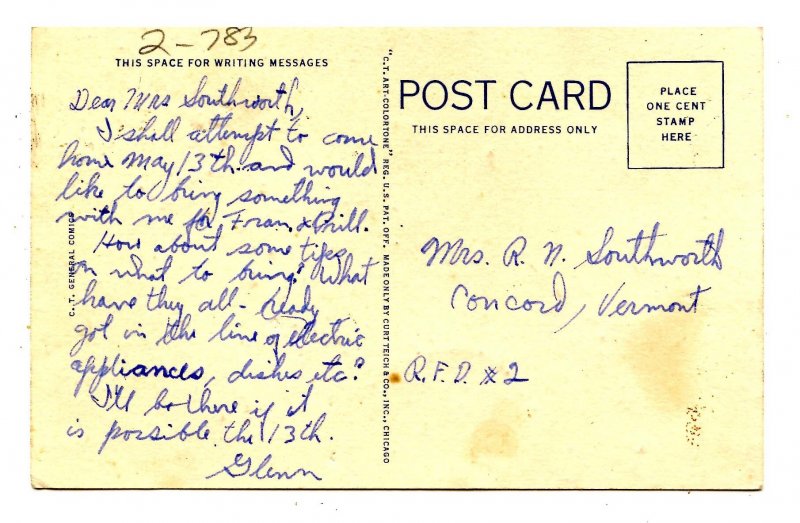 2-783
THIS SPACE FOR WRITING MESSAGES
Dear Mrs Southworth,
I shall attempt to come
home May 13th and would
like to bring something
with me for Fran & Bill.
How about some tips
on what to bring? What
have they all-ready
got in the line of electric
appliances, dishes etc?
I'll be there if it
is possible the 13th.
Glenn
C.T. GENERAL COMICS
"C.T. ART-COLORTONE" REG. U.S. PAT. OFF. MADE ONLY BY CURT TEICH & CO., INC., CHICAGO
POST CARD
THIS SPACE FOR ADDRESS ONLY
PLACE
ONE CENT
STAMP
HERE
Mrs. R. N. Southworth
Concord, Vermont
R.F.D. #2